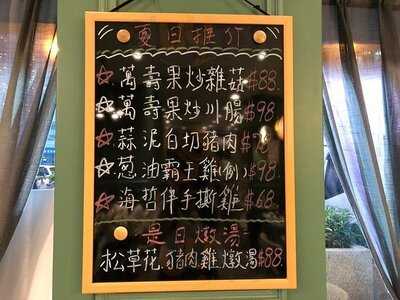 夏日推介
萬壽果炒雜菇$88
萬壽果炒川腸$98
蒜泥白切豬肉$98
葱油霸王雞(例)$98
海哲伴手撕雞$68
是日燉湯
松草花.豬肉雞燉湯$88